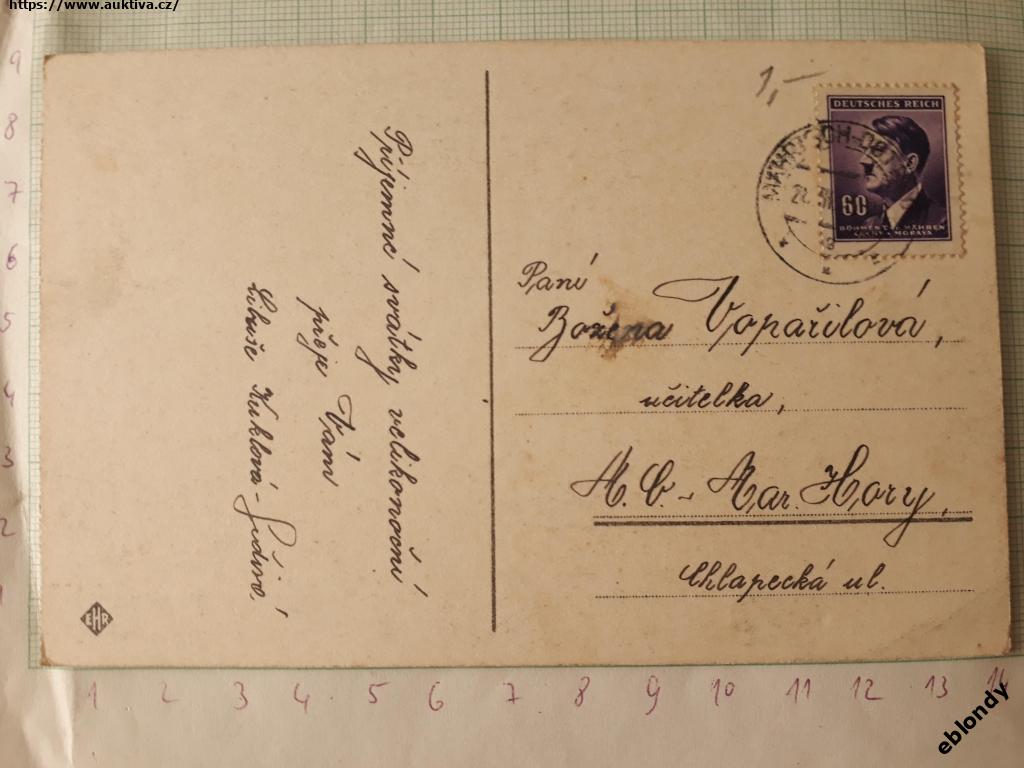 https://www.auktiva.cz/
9
8
7
6
5
4
3
2
1
1,—
DEUTSCHES REICH
60
BÖHMEN U. MÄHREN
ČECHY A MORAVA
Příjemné svátky velikonoční
přeje Vám
Libuše Kuklová -
Paní
Božena Vopařilová,
učitelka,
M. O. - Mar. Hory,
Chlapecká ul.
EHR
1 2 3 4 5 6 7 8 9 10 11 12 13 14
eblondy